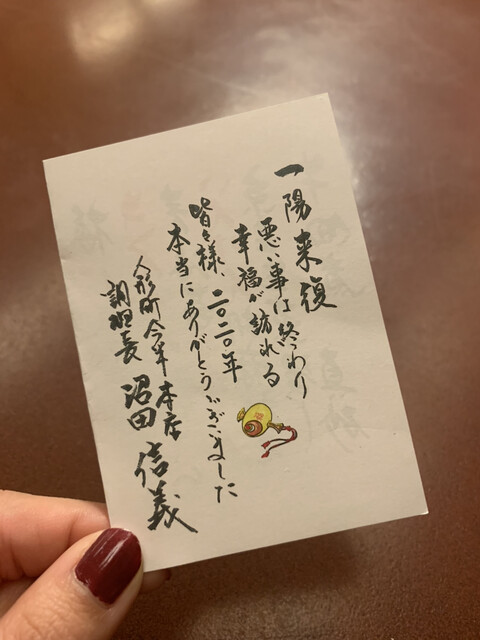 一陽来復
悪い事は終わり
幸福が訪れる
皆々様、二〇二〇年
本当にありがとうございました
人形町今半本店
調理長 沼田信義